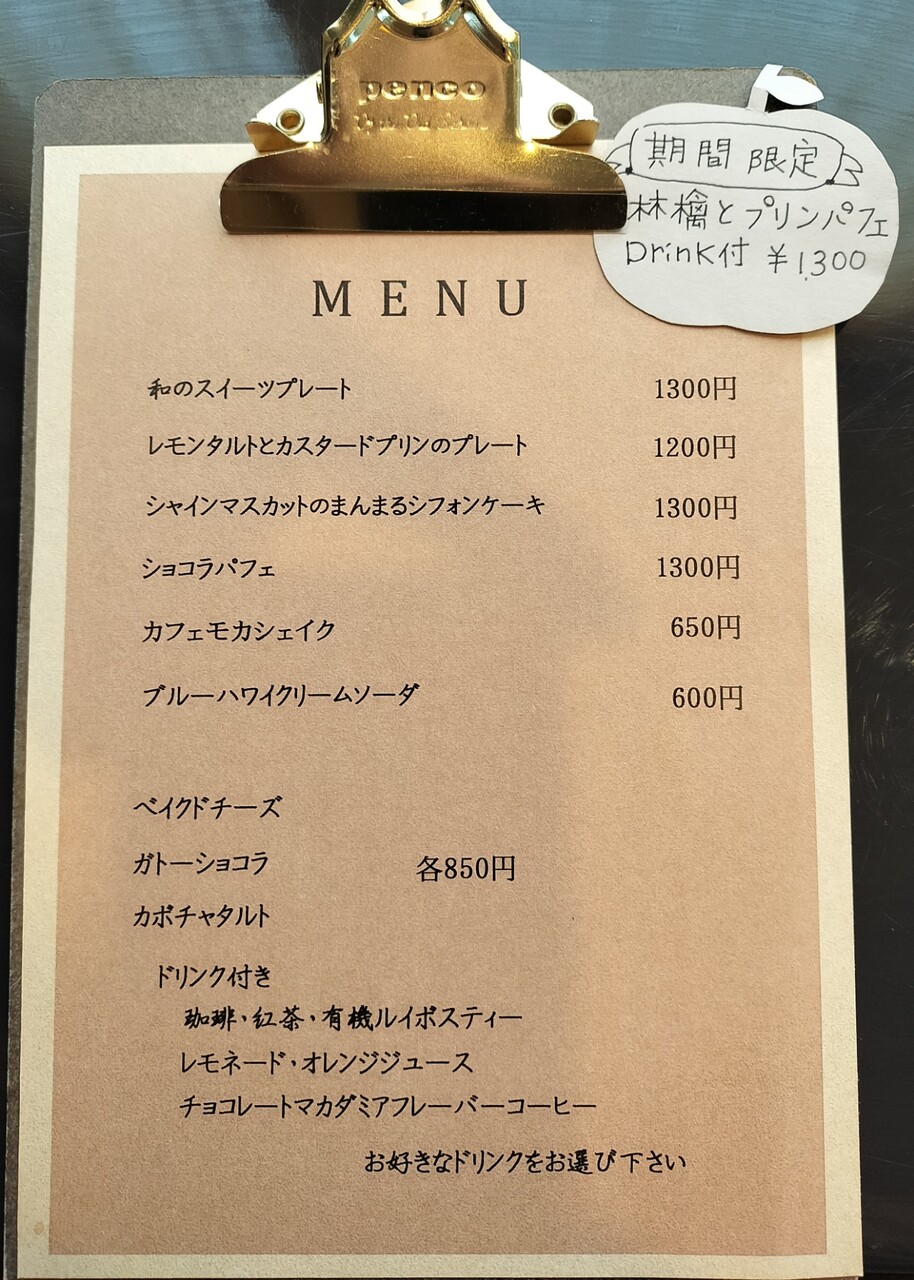 penco
期間限定
林檎とプリンパフェ
Drink付 ¥1,300
MENU
和のスイーツプレート 1300円
レモンタルトとカスタードプリンのプレート 1200円
シャインマスカットのまんまるシフォンケーキ 1300円
ショコラパフェ 1300円
カフェモカシェイク 650円
ブルーハワイクリームソーダ 600円
ベイクドチーズ
ガトーショコラ 各850円
カボチャタルト
ドリンク付き
珈琲・紅茶・有機ルイボスティー
レモネード・オレンジジュース
チョコレートマカダミアフレーバーコーヒー
お好きなドリンクをお選び下さい